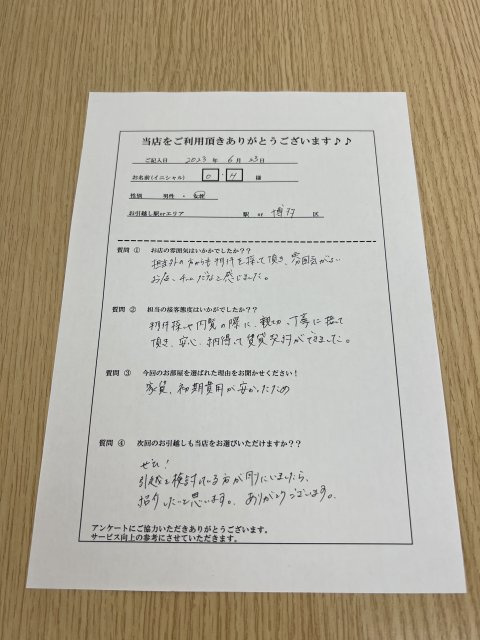 当店をご利用頂きありがとうございます♪♪
ご記入日 2023 年 6 月 23 日
お名前(イニシャル) O ・ H 様
性別 男性 ・ 女性
お引越し駅orエリア 駅 or 博多 区
質問 ① お店の雰囲気はいかがでしたか??
担当外の方からも物件を探して頂き、雰囲気がよい
お店、チームだなと感じました。
質問 ② 担当の接客態度はいかがでしたか??
物件探しや内覧の際に、親切、丁寧に探して
頂き、安心、納得して賃貸契約ができました。
質問 ③ 今回のお部屋を選ばれた理由をお聞かせください!
家賃、初期費用が安かったため
質問 ④ 次回のお引越しも当店をお選びいただけますか??
ぜひ!
引越しを検討している方が周りにいましたら、
紹介したいと思います。ありがとうございます。
アンケートにご協力いただきありがとうございます。
サービス向上の参考にさせていただきます。